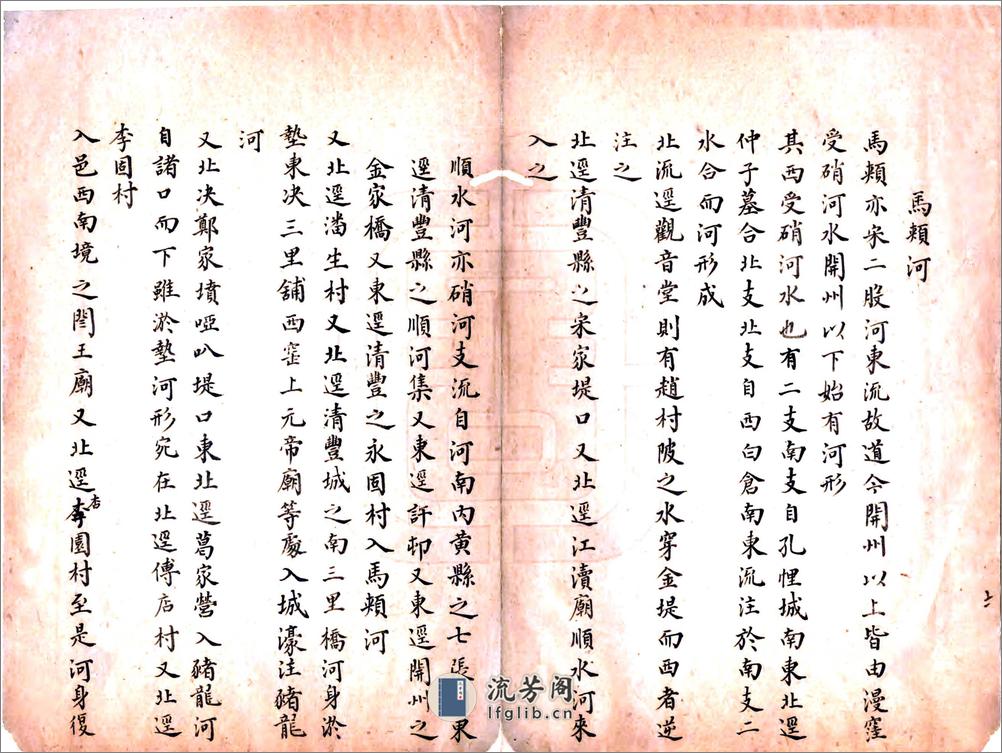 馬頰河
馬頰亦宋二股河東流故道今開州以上皆由漫窪
受硝河水開州以下始有河形
其西受硝河水也有二支南支自孔悝城南東北逕
仲子墓合北支北支自西白倉南東流注於南支二
水合而河形成
北流逕觀音堂則有趙村陂之水穿金堤而西者逆
注之
北逕清豐縣之宋家堤口又北逕江瀆廟順水河來
入之
順水河亦硝河支流自河南內黃縣之七張 東
逕清豐縣之順河集又東逕許邨又東逕開州之
金家橋又東逕清豐之永固村入馬頰河
又北逕潘生村又北逕清豐城之南三里橋河身淤
墊東決三里舖西窪上元帝廟等處入城濠注豬龍
河
又北決鄭家墳啞叭堤口東北逕葛家營入豬龍河
自諸口而下雖淤墊河形宛在北逕傅店村又北逕
李固村
入邑西南境之閆王廟又北逕杏園村至是河身復
流芳阁
lfglib.cn